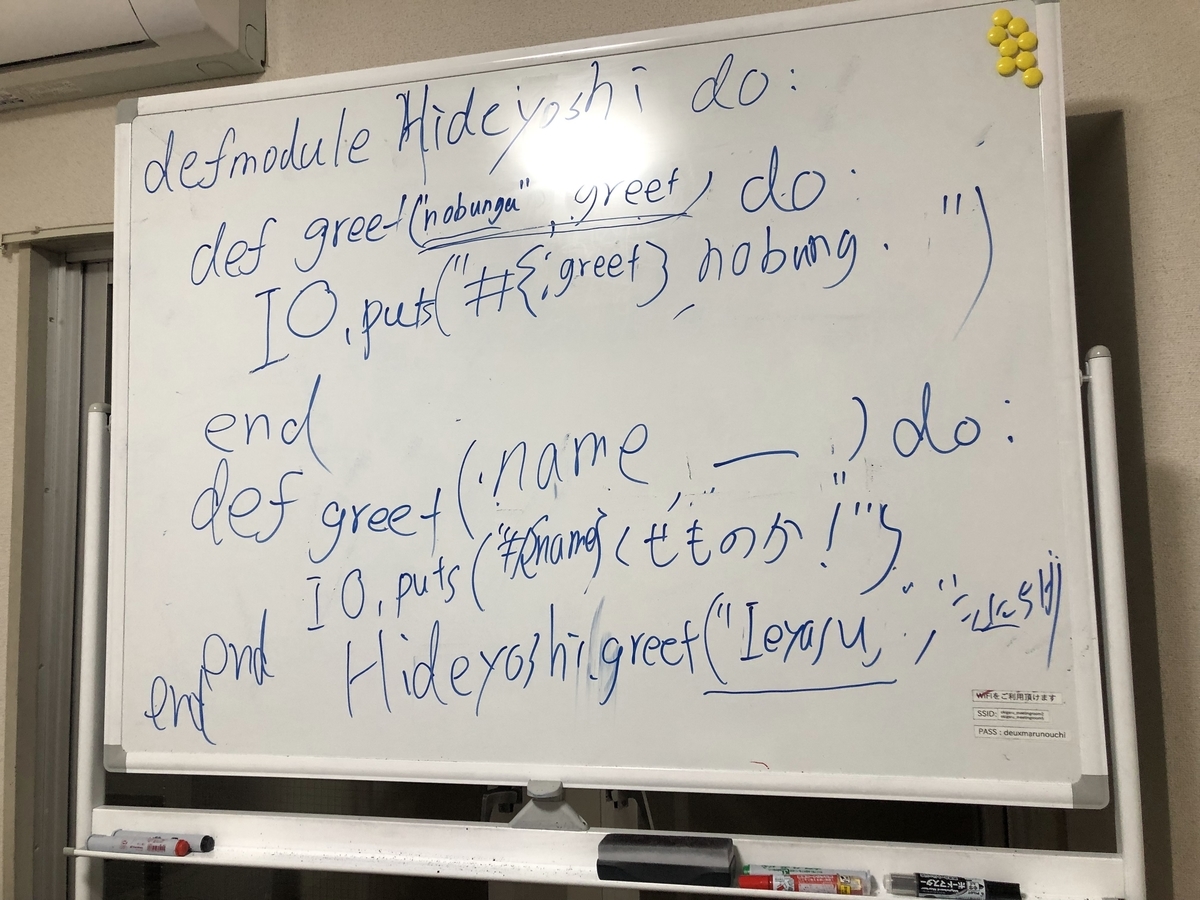 defmodule Hideyoshi do:
def greet("nobunga", greet) do:
IO.puts("#{greet}, nobung. ")
end
def greet(name, _) do:
IO.puts("#{name}くせものか!")
end
Hideyoshi.greet("Ieyasu",
end
WiFiをご利用頂けます
SSID:
PASS : deuxmarunouchi
ボードマスター